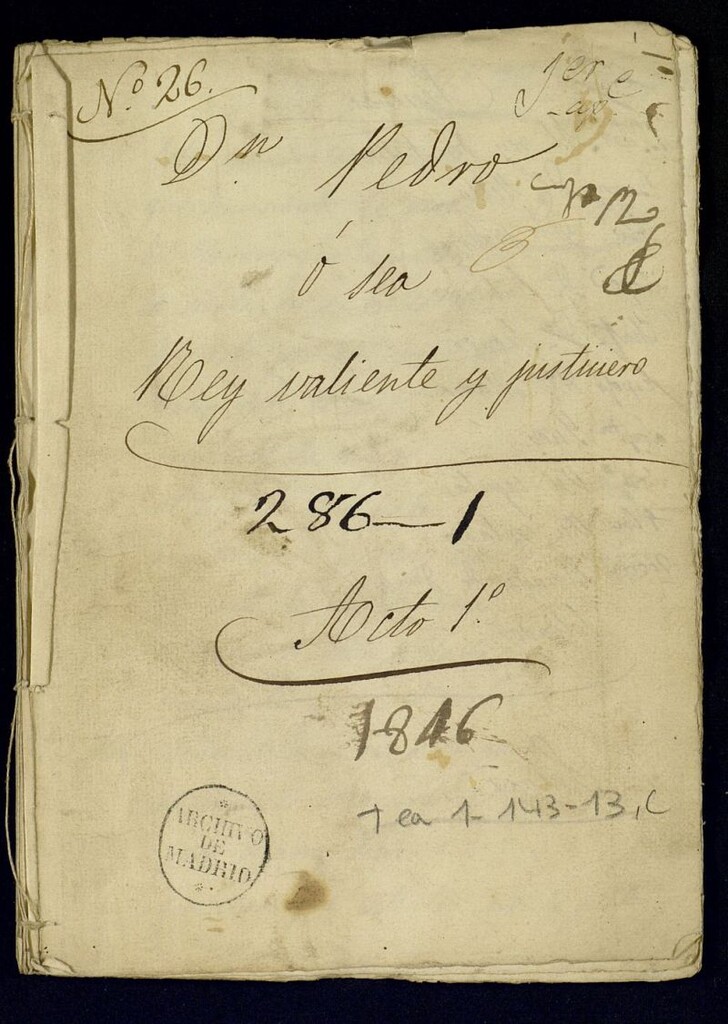 Nº 26.
Dn Pedro
ó sea
Rey valiente y justiciero
286—1
Acto 1º
1846
Tea 1-143-13, C
ARCHIVO
DE
MADRID